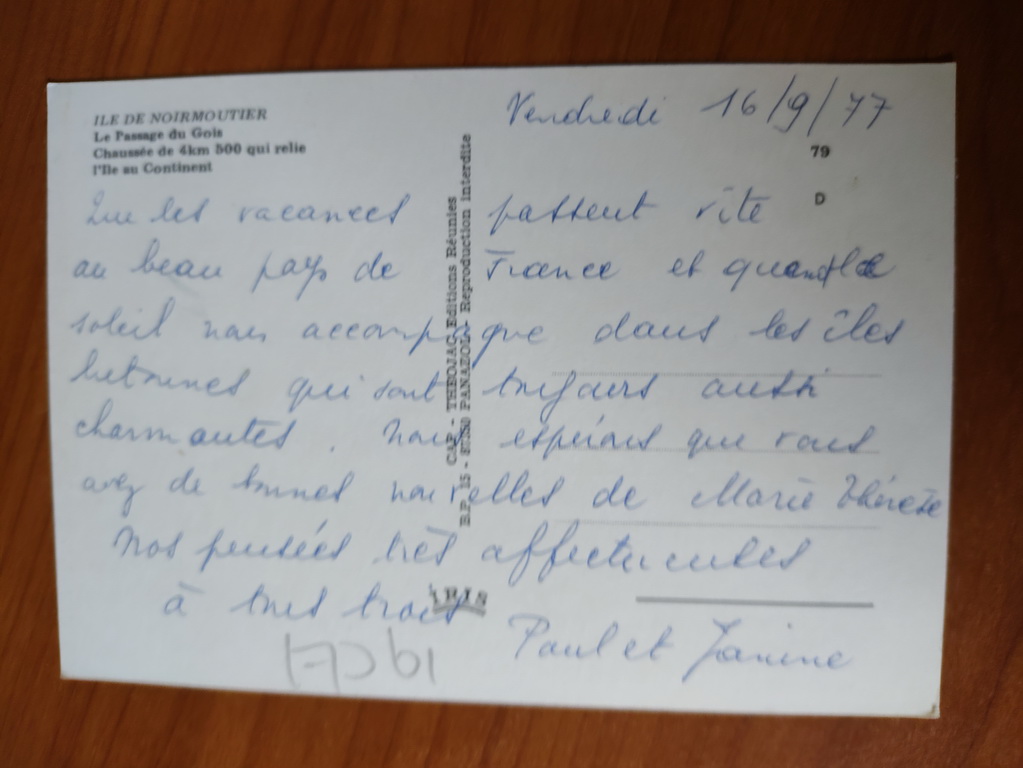 ILE DE NOIRMOUTIER
Le Passage du Gois
Chaussée de 4km 500 qui relie
l'Ile au Continent
Vendredi 16/9/77
79
D
Que les vacances passent vite
au beau pays de France et quand le
soleil nous accompagne dans les îles
bretonnes qui sont toujours aussi
charmantes. Nous espérons que vous
avez de bonnes nouvelles de Marie Thérèse
Nos pensées très affectueuses
à tous trois
Paul et Janine
CAP - THEOJAC Editions Réunies
B.P. 15 - 87350 PANAZOL - Reproduction interdite
IRIS